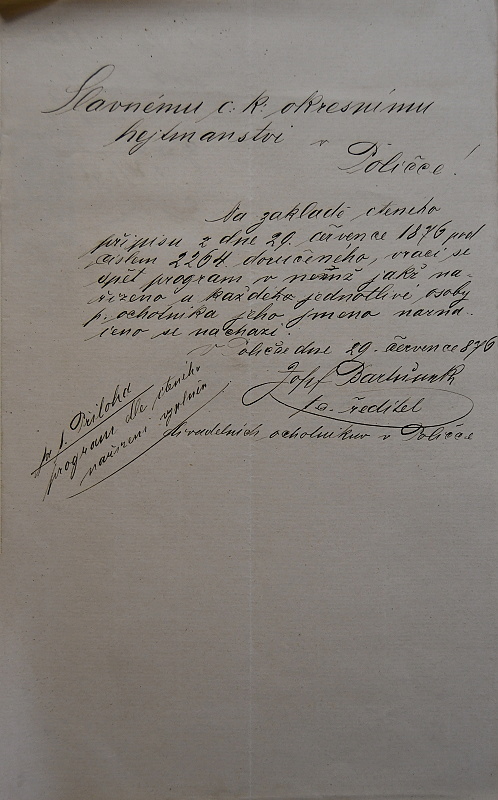 Slavnému c. k. okresnímu
hejtmanství v
Poličce!
Na zakladě cteneho
připisu z dne 29. července 1876 pod
čislem 2264 doručeného, vraci se
spět program v němž jakž na-
řizeno u každého jednotlivi osoby
p. ochotnika jeho jmeno nazna-
čeno se nachazi.
v Poličce dne 29. července 876
Josef Bartůněk
ředitel
divadelnich ochotnikův v Poličce
1. Příloha
program dle cteného
nařízení vyplněn